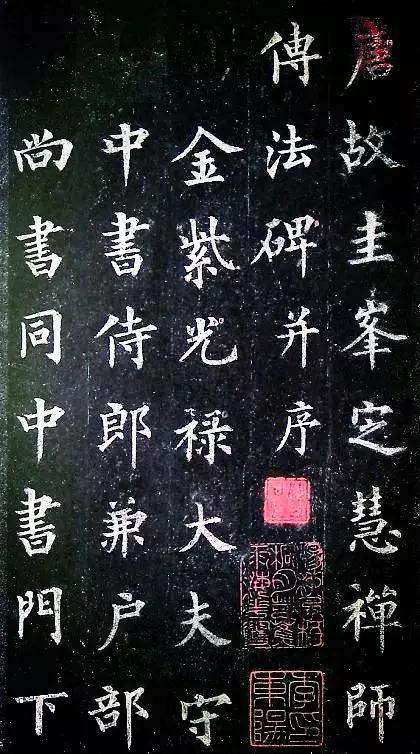 唐故圭峯定慧禪師
傳法碑并序
金紫光祿大夫守
中書侍郎兼户部
尚書同中書門下